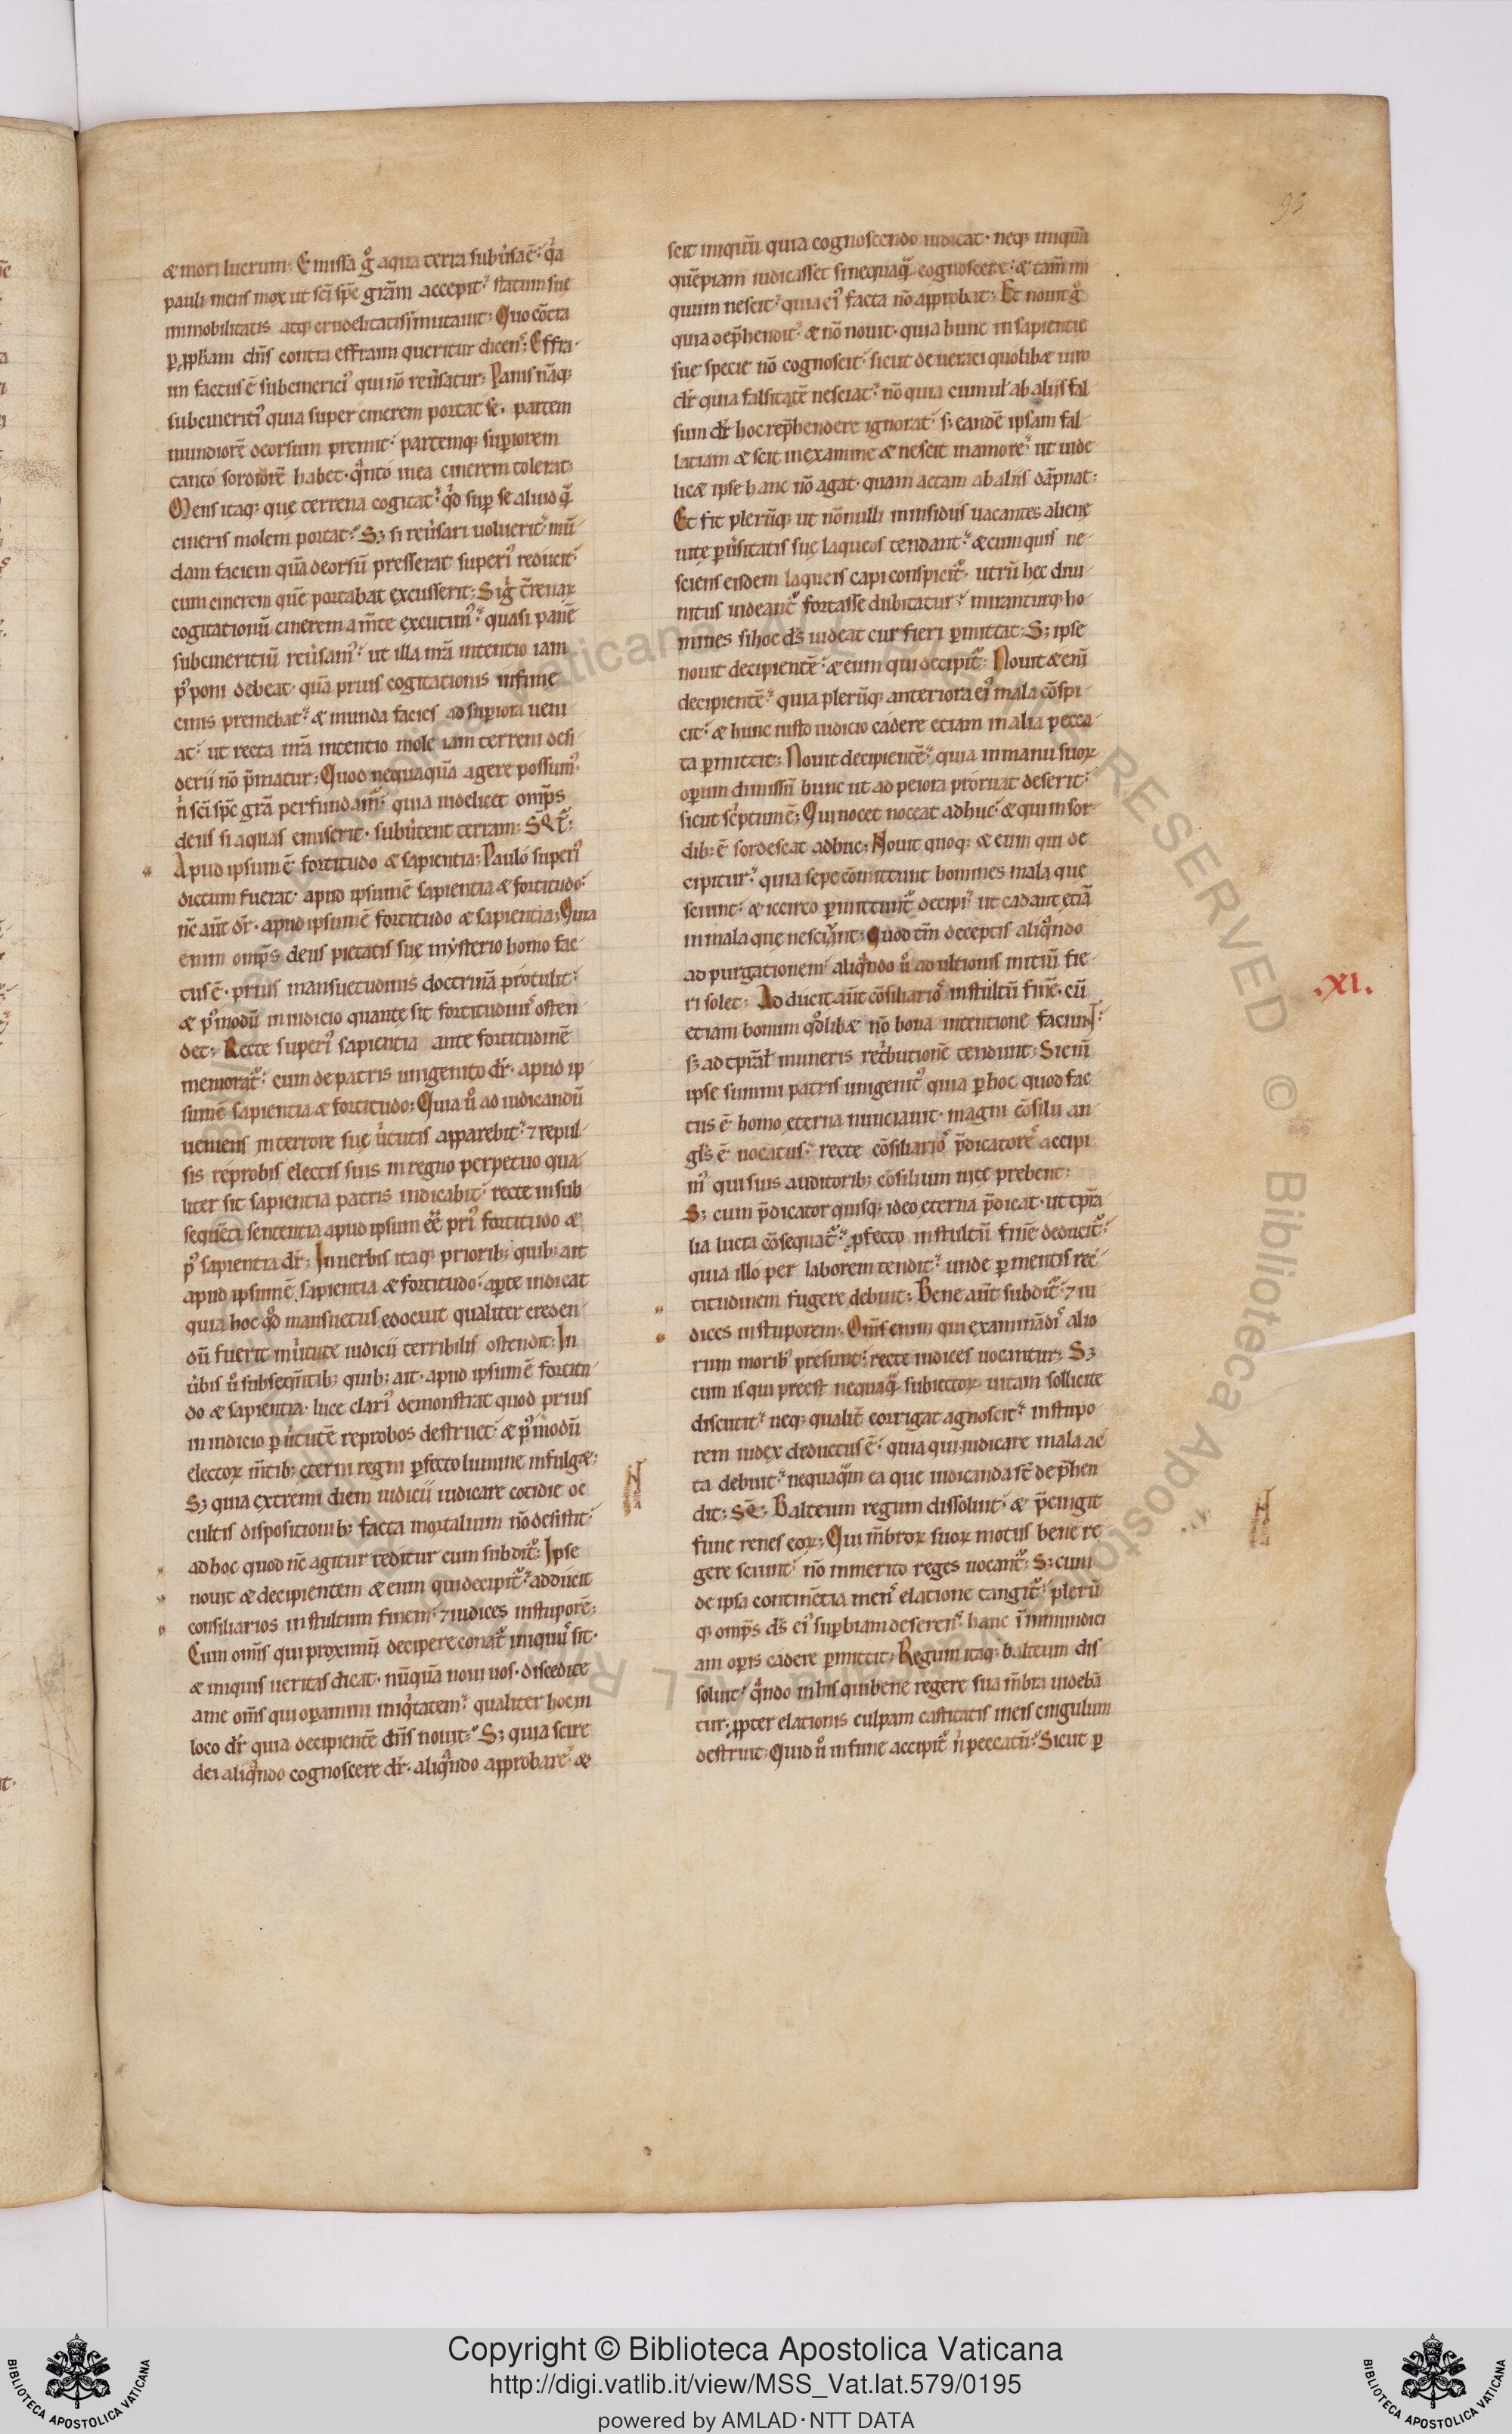 93
& mori lucrum; Emissa g̊ aqua terra subuͥsa ē: qͥa
pauli mens mox ut sc̄i sp̄c grām accepit: statum suę
immobilitatis atq; crudelitatis īmutauit; Quo cōtra
ꝑ ꝓph̄am dn̄s contra effraim queritur dicens; Effra-
im factus ē subcinericiꝰ qui nō reuͥsatur; Panis nāq;
subcineritiꝰ quia super cinerem portat se, partem
mundiorē deorsum premit: partemq; suꝑiorem
tanto sordidiorē habet, qͣnto in ea cinerem tolerat;
Mens itaq; quę terrena cogitat: qͥd suꝑ se aliud qͣ̄
cineris molem portat; Sꝫ si reuͥsari uoluerit: mū-
dam faciem quā deorsū presserat superiꝰ reducit:
cum cinerem quē portabat excusserit; Si gͥ t̄renaꝝ
cogitationū cinerem a m̄te excutimꝰ: quasi panē
subcineritiū reuͥsamꝰ: ut illa nr̄a intentio iam
pꝰponi debeat, quā prius cogitationis infimę
cinis premebat: & munda facies ad suꝑiora ueni-
at: ut recta nr̄a intentio mole iam terreni desi-
derii nō p̄matur; Quod nequaquā agere possumꝰ
nͥ sc̄i sp̄c gr̄a perfundamꝰ: quia uidelicet omp̄s
deus si aquas emiserit, subuͥtent terram;
Apud ipsum ē fortitudo & sapientia; Paulo superiꝰ
dictum fuerat, apud ipsum ē sapientia & fortitudo:
nc̄ aūt dr̄, apud ipsum ē fortitudo & sapientia; Quia
enim omp̄s deus pietatis suę mysterio homo fac-
tus ē, prius mansuetudinis doctrinā protulit:
& pꝰmodū in iudicio quantę sit fortitudinis osten-
det; Recte superiꝰ sapientia ante fortitudinē
memoratͬ: cum de patris unigenito dr̄, apud ip-
sum ē sapientia & fortitudo; Quia ů ad iudicandū
ueniens in terrore suę uͥtutis apparebit: ⁊ repul-
sis reprobis electis suis in regno perpetuo qua-
liter sit sapientia patris indicabit: recte in sub-
sequēti sententia apud ipsum eē̄ priꝰ fortitudo &
pꝰ sapientia dr̄; In uerbis itaq; priorib; quib; ait
apud ipsum ē sapientia & fortitudo: aꝑte indicat
quia hoc qͦd mansuetus edocuit qualiter creden-
dū fuerit in uͥtute iudicii terribilis ostendit; In
uͥbis ů subseqn̄tib; quib; ait, apud ipsum ē fortitu-
do & sapientia, luce clariꝰ demonstrat quod prius
in iudicio ꝑ uͥtutē reprobos destruet: & pꝰmodū
electoꝝ m̄tib; eterni regni ꝑfecto lumine infulg&;
Sꝫ quia extremi diem iudicii iudicare cotidie oc-
cultis dispositionib; facta mortalium nō desistit:
ad hoc quod nc̄ agitur reditur cum subditͬ; Ipse
nouit & decipientem & eum qui decipitͬ: adducit
consiliarios in stultum finem: ⁊ iudices in stuporē;
Cum omīs qui proximū decipere conatͬ iniquus sit,
& iniquis ueritas dicat, nūquā noui uos, discedite
a me omīs qui oꝑamini iniqͥtatem: qualiter hoc in
loco dr̄ quia decipientē dn̄s nouit; Sꝫ quia scire
dei aliqͣndo cognoscere dr̄, aliqͣndo approbare: &
scit iniquū quia cognoscendo iudicat, neq; iniquū
quēpiam iudicasset si nequaqͣ̄ cognosceret: & tam̄ ini-
quum nescit: quia eiꝰ facta nō approbat; Et nouit g̊
quia dep̄hendit: & nō nouit, quia hunc in sapientię
suę specie nō cognoscit: sicut de ueraci quolib& uiro
dr̄ quia falsitatē nesciat: nō quia cum ul̄ ab aliis fal-
sum dr̄ hoc rep̄hendere ignorat: sꝫ eandē ipsam fal-
latiam & scit in examine & nescit in amore: ut uide-
lic& ipse hanc nō agat, quam actam ab aliis dāpnat;
Et fit plerūq; ut nōnulli in insidiis uacantes alienę
uitę ꝑuͥsitatis suę laqueos tendant: & cum quis ne-
sciens eisdem laqueis capi conspicitͬ, utrū hec diui-
nitus uideantͬ fortasse dubitatur: miranturq; ho-
mines si hoc ds̄ uideat cur fieri ꝑmittat; Sꝫ ipse
nouit decipientē: & eum qui decipitͬ; Nouit & enī
decipientē: quia plerūq; anteriora eiꝰ mala cōspi-
cit: & hunc iusto iudicio cadere etiam in alia pecca-
ta ꝑmittit; Nouit decipientē: quia in manu suoꝝ
oꝑum dimissū hunc ut ad peiora proruat deserit:
sicut scͥptum ē; Qui nocet noceat adhuc: & qui in sor-
dib; ē sordescat adhuc; Nouit quoq; & eum qui de-
cipitur: quia sepe cōmittunt homines mala que
sciunt: & iccirco ꝑmittuntͬ decipi: ut cadant etiā
in mala quę nesciunt; Quod tm̄ deceptis aliqͣndo
ad purgationem: aliqͣndo ů ad ultionis initiū fie-
ri solet; Adducit aūt cōsiliarios in stultū finē, cū
etiam bonum qͦdlib& nō bona intentione faciunt:
sꝫ ad tp̄rāl muneris retͥbutionē tendunt; Si enī
ipse summi patris unigenitꝰ quia ꝑ hoc quod fac-
tus ē homo eterna nunciauit, magni cōsilii an-
gls̄ ē uocatus: recte cōsiliarios p̄dicatores accipi-
mꝰ qui suis auditorib; cōsilium uitę prebent;
Sꝫ cum p̄dicator quisq; ideo eterna p̄dicat, ut tp̄ra-
lia lucra cōsequatͬ: ꝓfecto in stultū finē deducitͬ:
quia illo per laborem tendit: unde ꝑ mentis rec-
titudinem fugere debuit; Bene aūt subditͬ: ⁊ iu-
dices in stuporem, Oms̄ enim qui examinādis alio-
rum moribꝰ presunt: recte iudices uocantur; Sꝫ
cum is qui preest nequaqͣ̄ subiectoꝝ uitam sollicite
discutit: neq; qualit̄ corrigat agnoscit: in stupo-
rem iudex deductus ē: quia qui iudicare mala ac-
ta debuit: nequaqͣm ea que iudicanda st̄ dep̄hen-
dit; Balteum regum dissoluit: & p̄cingit
fune renes eoꝝ; Qui m̄broꝝ suoꝝ motus bene re-
gere sciunt: nō immerito reges uocantͬ; Sꝫ cum
de ipsa continētia mens elatione tangitͬ: plerū-
q; omp̄s ds̄ eiꝰ suꝑbiam deserens: hanc ī inmundici-
am oꝑis cadere ꝑmittit; Regum itaq; balteum dis-
soluit: qͣndo in his qui bene regere sua m̄bra uidebā-
tur, ꝓpter elationis culpam castitatis in eis cingulum
destruit; Quid ů in fune accipitͬ nͥ peccatū; Sicut ꝑ
.XI.
Copyright © Biblioteca Apostolica Vaticana
http://digi.vatlib.it/view/MSS_Vat.lat.579/0195
powered by AMLAD·NTT DATA